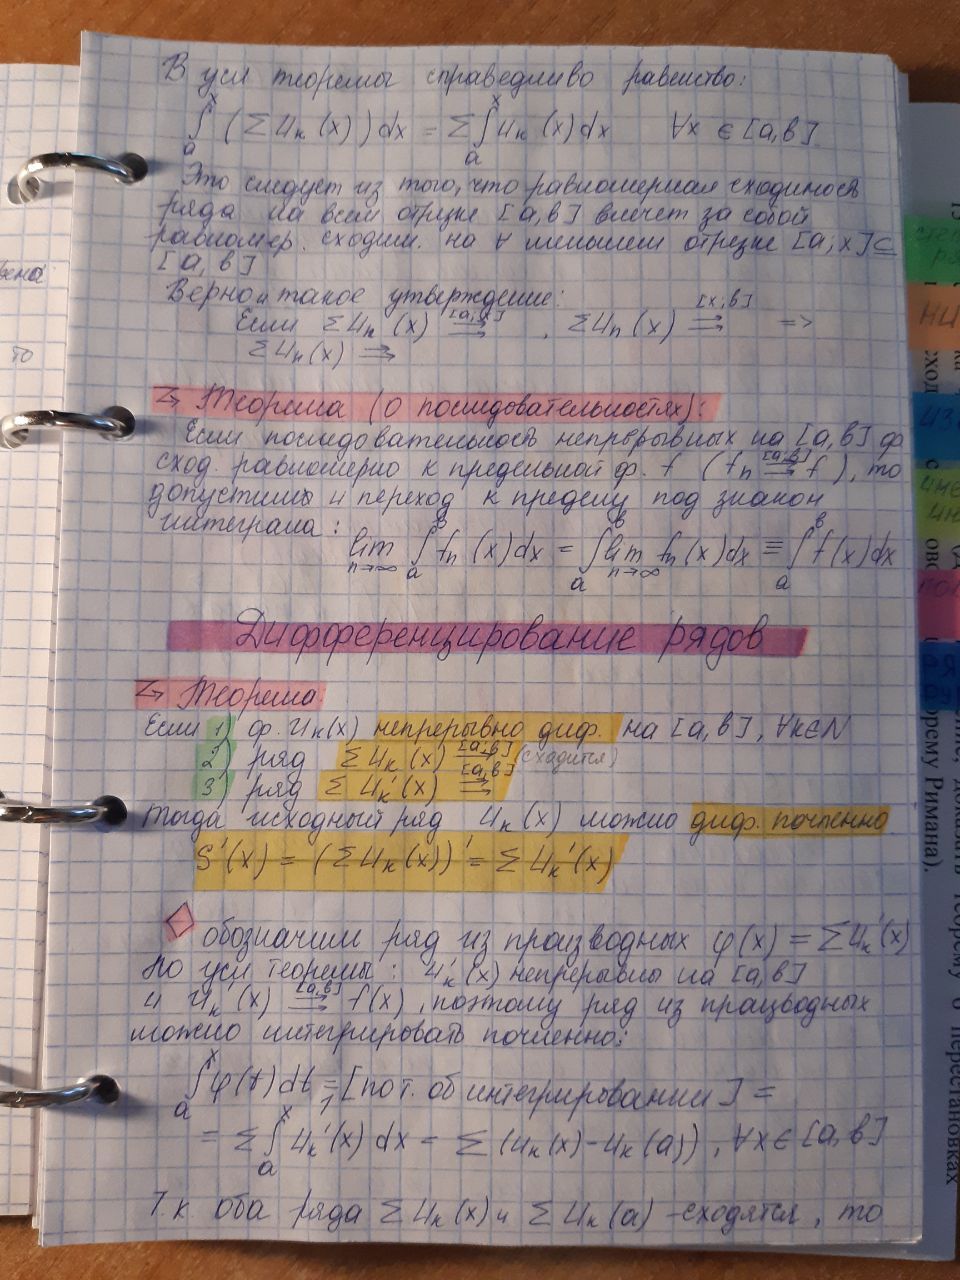 В усл теоремы справедливо равенство:
∫ₐˣ (Σ Uₖ(x)) dx = Σ ∫ₐˣ Uₖ(x) dx ∀x ∈ [a,b]
Это следует из того, что равномерная сходимость
ряда на всем отрезке [a,b] влечет за собой
равномер. сходим. на ∀ меньшем отрезке [a;x] ⊆
[a,b]
Верно и такое утверждение:
Если Σ Uₙ(x) ⇉ [a;x] , Σ Uₙ(x) ⇉ [x;b] =>
Σ Uₙ(x) ⇉
↳ Теорема (о последовательностях):
Если последовательность непрерывных на [a,b] ф
сход. равномерно к предельной ф. f (fₙ ⇉ [a,b] f), то
допустим и переход к пределу под знаком
интеграла:
lim n→∞ ∫ₐᵇ fₙ(x)dx = ∫ₐᵇ lim n→∞ fₙ(x)dx ≡ ∫ₐᵇ f(x)dx
Дифференцирование рядов
↳ Теорема
Если 1) ф. Uₖ(x) непрерывно диф. на [a,b], ∀k∈N
2) ряд Σ Uₖ(x) → [a;b] (сходится)
3) ряд Σ Uₖ'(x) ⇉ [a,b]
Тогда исходный ряд Uₖ(x) можно диф. почленно
S'(x) = (Σ Uₖ(x))' = Σ Uₖ'(x)
обозначим ряд из производных φ(x) = Σ Uₖ'(x)
По усл теоремы: Uₖ'(x) непрерывно на [a,b]
и Uₖ'(x) ⇉ [a,b] f(x), поэтому ряд из працводных
можно интегрировать почленно:
∫ₐˣ φ(t) dt = [по т. об интегрировании] =
1
= Σ ∫ₐˣ Uₖ'(x) dx = Σ (Uₖ(x) - Uₖ(a)), ∀x∈[a,b]
Т.к. оба ряда Σ Uₖ(x) и Σ Uₖ(a) - сходятся, то
то
НИ
ИЗ
ИНС
ов
теорему о перестановках
Римана).